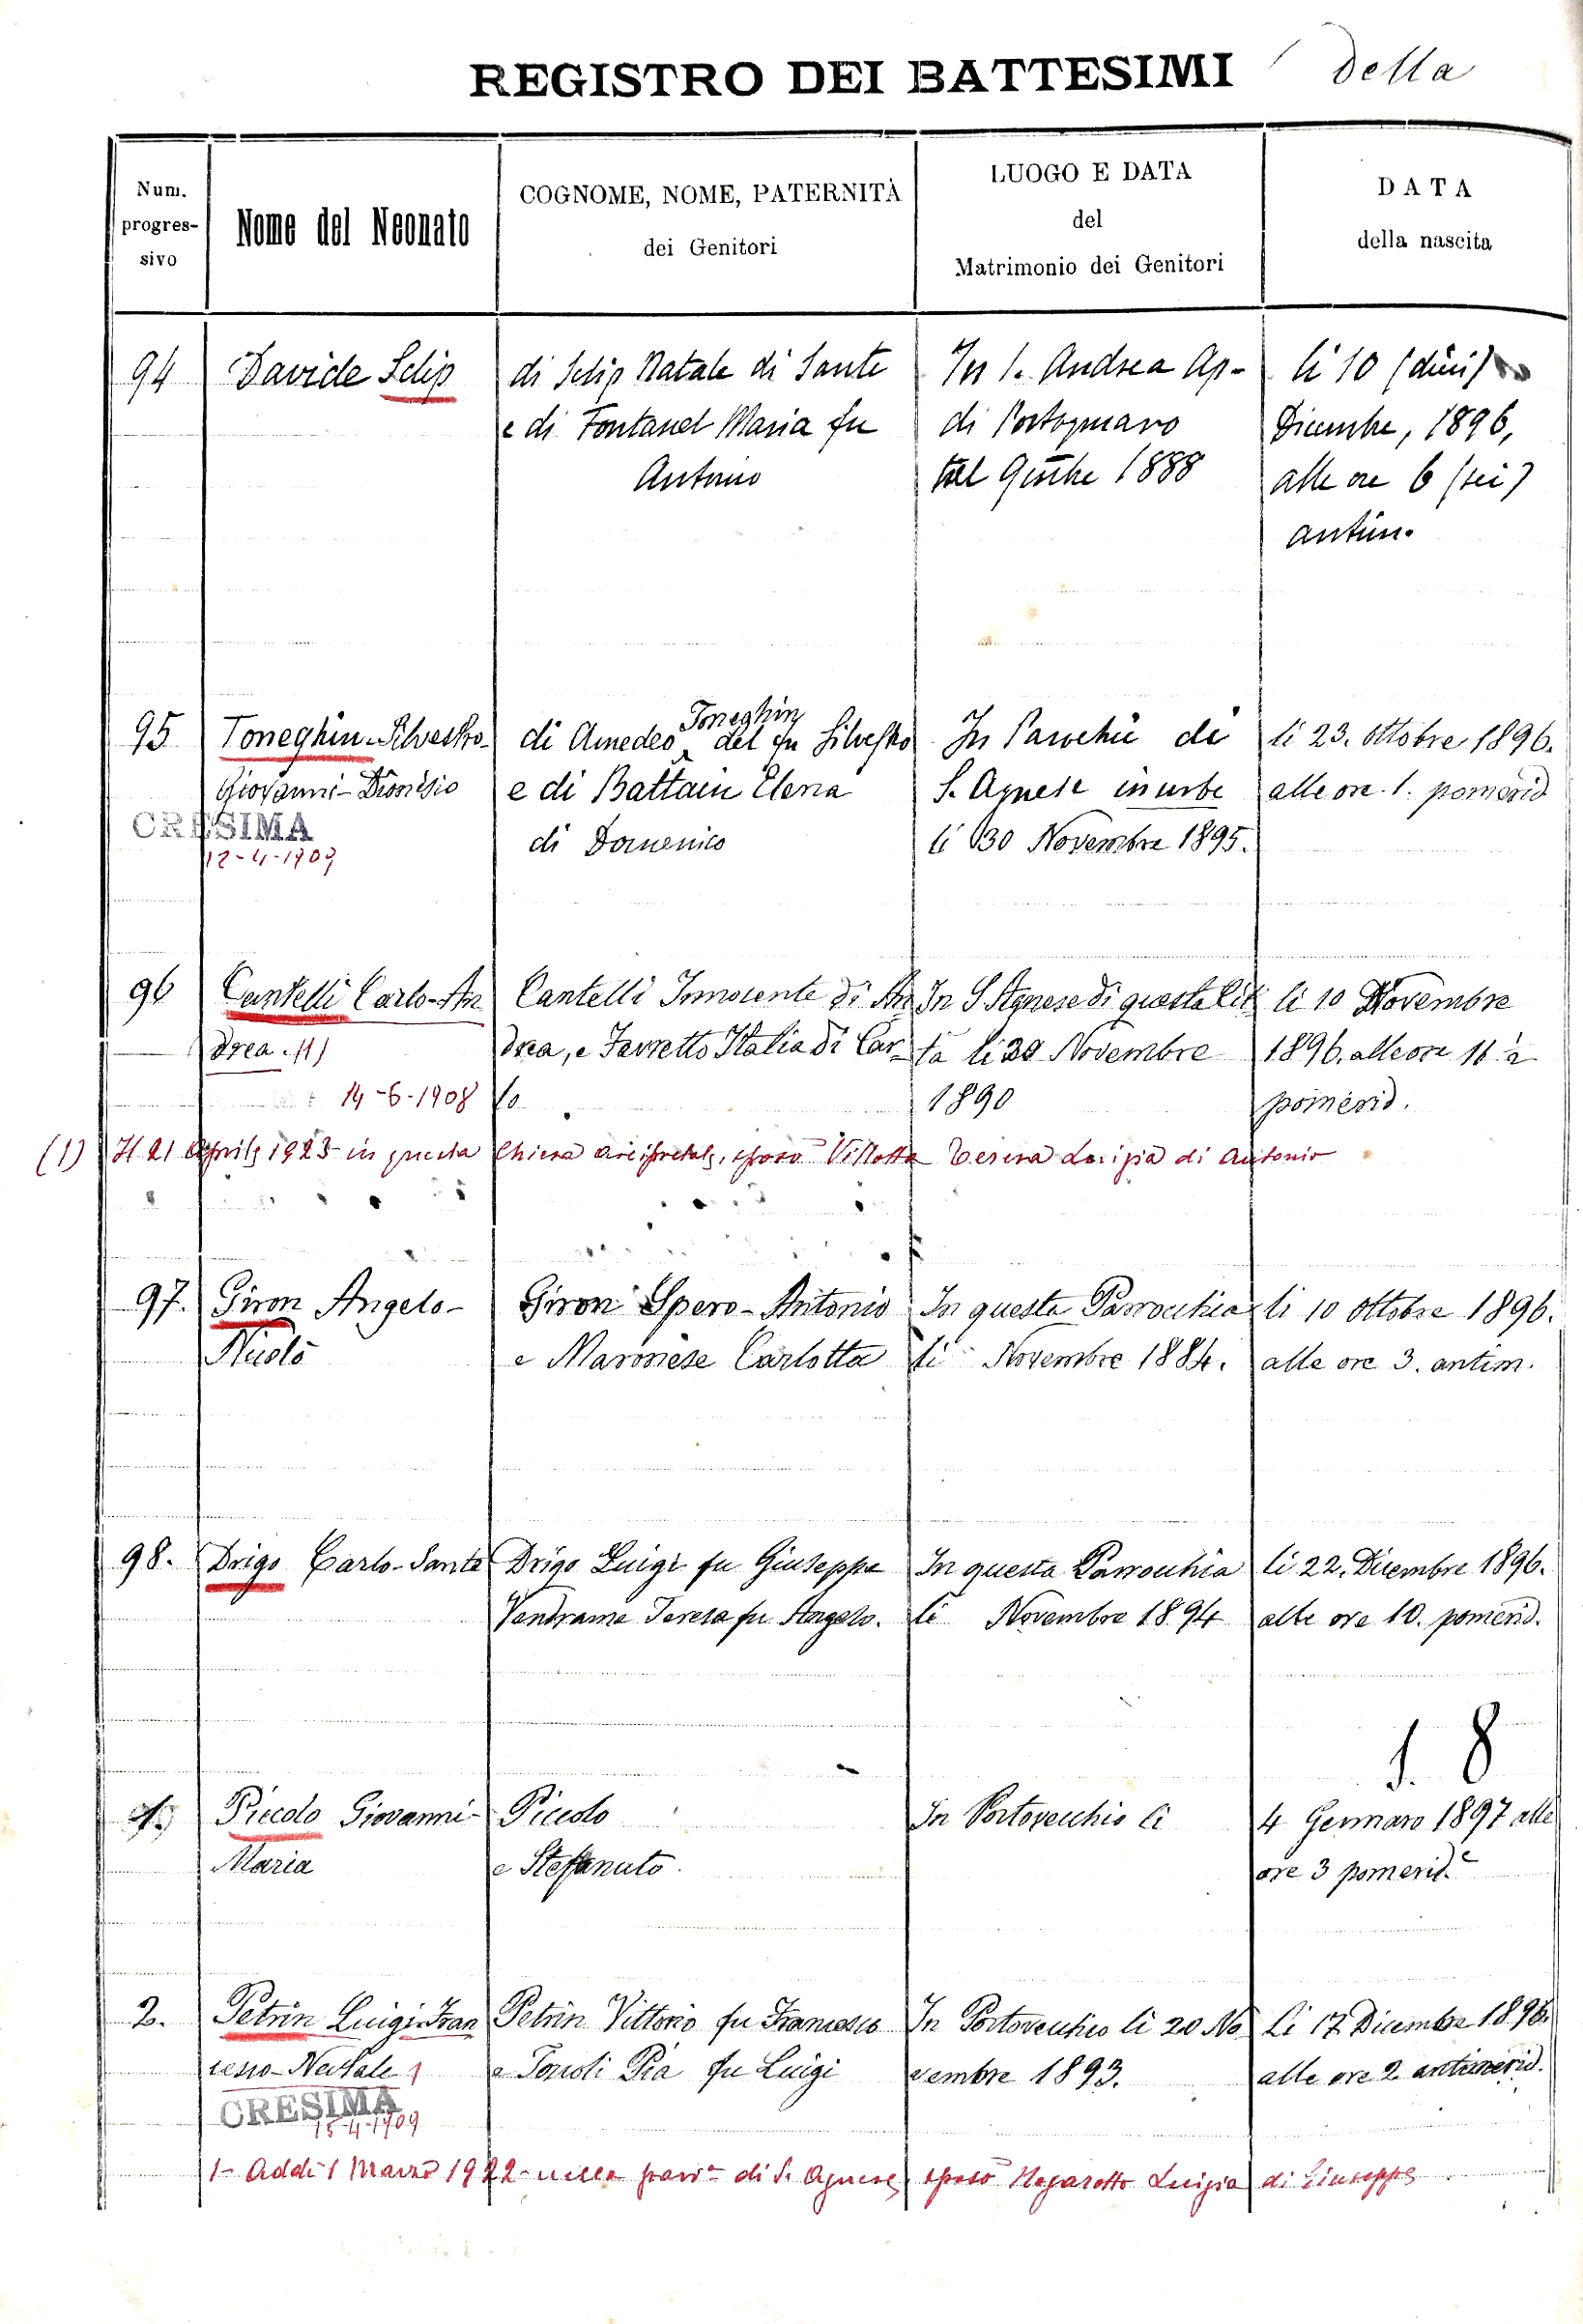 REGISTRO DEI BATTESIMI della
Num. progres-sivo
Nome del Neonato
COGNOME, NOME, PATERNITÀ
dei Genitori
LUOGO E DATA
del
Matrimonio dei Genitori
DATA
della nascita
94
Davide Selip
di Selip Natale di Sante
e di Fontanel Maria fu
Antonio
In S. Andrea Ap-
di Portogruaro
1888
li 10 (dieci)
Dicembre, 1896,
alle ore 6 (sei)
antim.
95
Toneghin-Silvestro-
Giovanni-Dionisio
CRESIMA
12-4-1909
Toneghin
di Amedeo del fu Silvestro
e di Battain Elena
di Domenico
In Parochie di
S. Agnese in urbe
li 30 Novembre 1895.
li 23. ottobre 1896.
alle ore 1. pomerid
96
Cantelli Carlo-An
drea. (1)
14-6-1908
Cantelli Innocente di An
drea, e Favretto Italia di Car-
lo
In S Agnese di questa Cit
tà li Novembre
1890
li 10 Novembre
1896. alle ore
pomerid.
(1) Il 21 Aprile 1923 in questa Chiesa arcipretale, sposò Villotta Teresa Luigia di Antonio
97.
Giron Angelo-
Nicolò
Giron Spero-Antonio
e Maronese Carlotta
In questa Parrocchia
li Novembre 1884.
li 10 ottobre 1896.
alle ore 3. antim.
98.
Drigo Carlo-Sante
Drigo Luigi fu Giuseppe
Vendrame Teresa fu Angelo.
In questa Parrocchia
li Novembre 1894
li 22. Dicembre 1896.
alle ore 10. pomerid.
8
Piccolo Giovanni-
Maria
Piccolo
e Stefanuto
In Portovecchio li
4 Gennaro 1897 alle
ore 3 pomerid.e
2.
Petrin Luigi-Fran
cesco-Natale 1
CRESIMA
15-4-1909
Petrin Vittorio fu Francesco
e Tonoli Pia fu Luigi
In Portovecchio li 20 No
vembre 1893.
li 17 Dicembre 1896.
alle ore 2 antimerid.
1- Addì 1 Marzo 1922 nella parr.a di S. Agnese sposò Luigia di Giuseppe